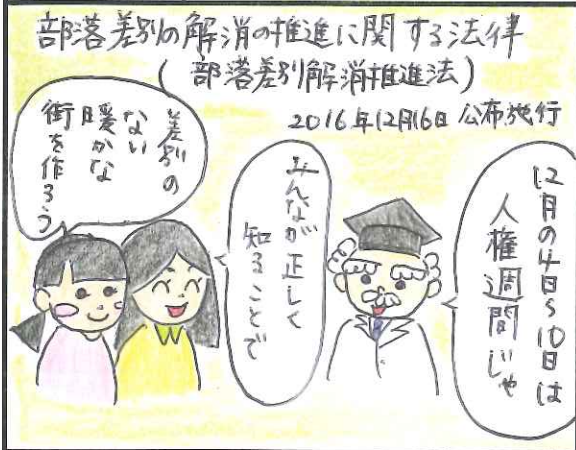 部落差別の解消の推進に関する法律
(部落差別解消推進法)
2016年12月16日 公布施行
12月の4日~10日は
人権週間じゃ
みんなが正しく
知ることで
差別の
ない
暖かな
街を作ろう